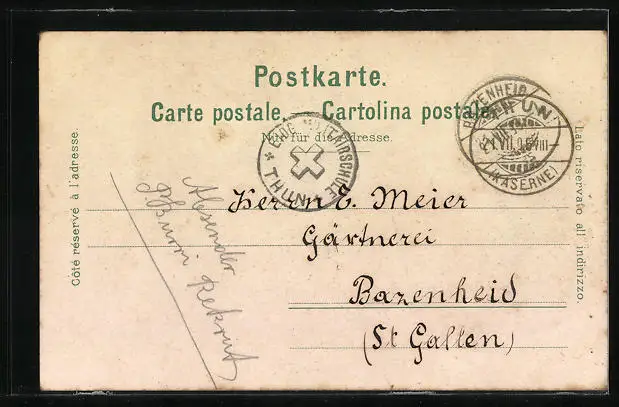 Postkarte.
Carte postale. Cartolina postale.
Nur für die Adresse.
Côté réservé à l'adresse.
Lato riservato all' indirizzo.
THUN
BAZENHEID
THUN
(KASERNE)
Absender
Rekrut
Herrn E. Meier
Gärtnerei
Bazenheid
(St Gallen)